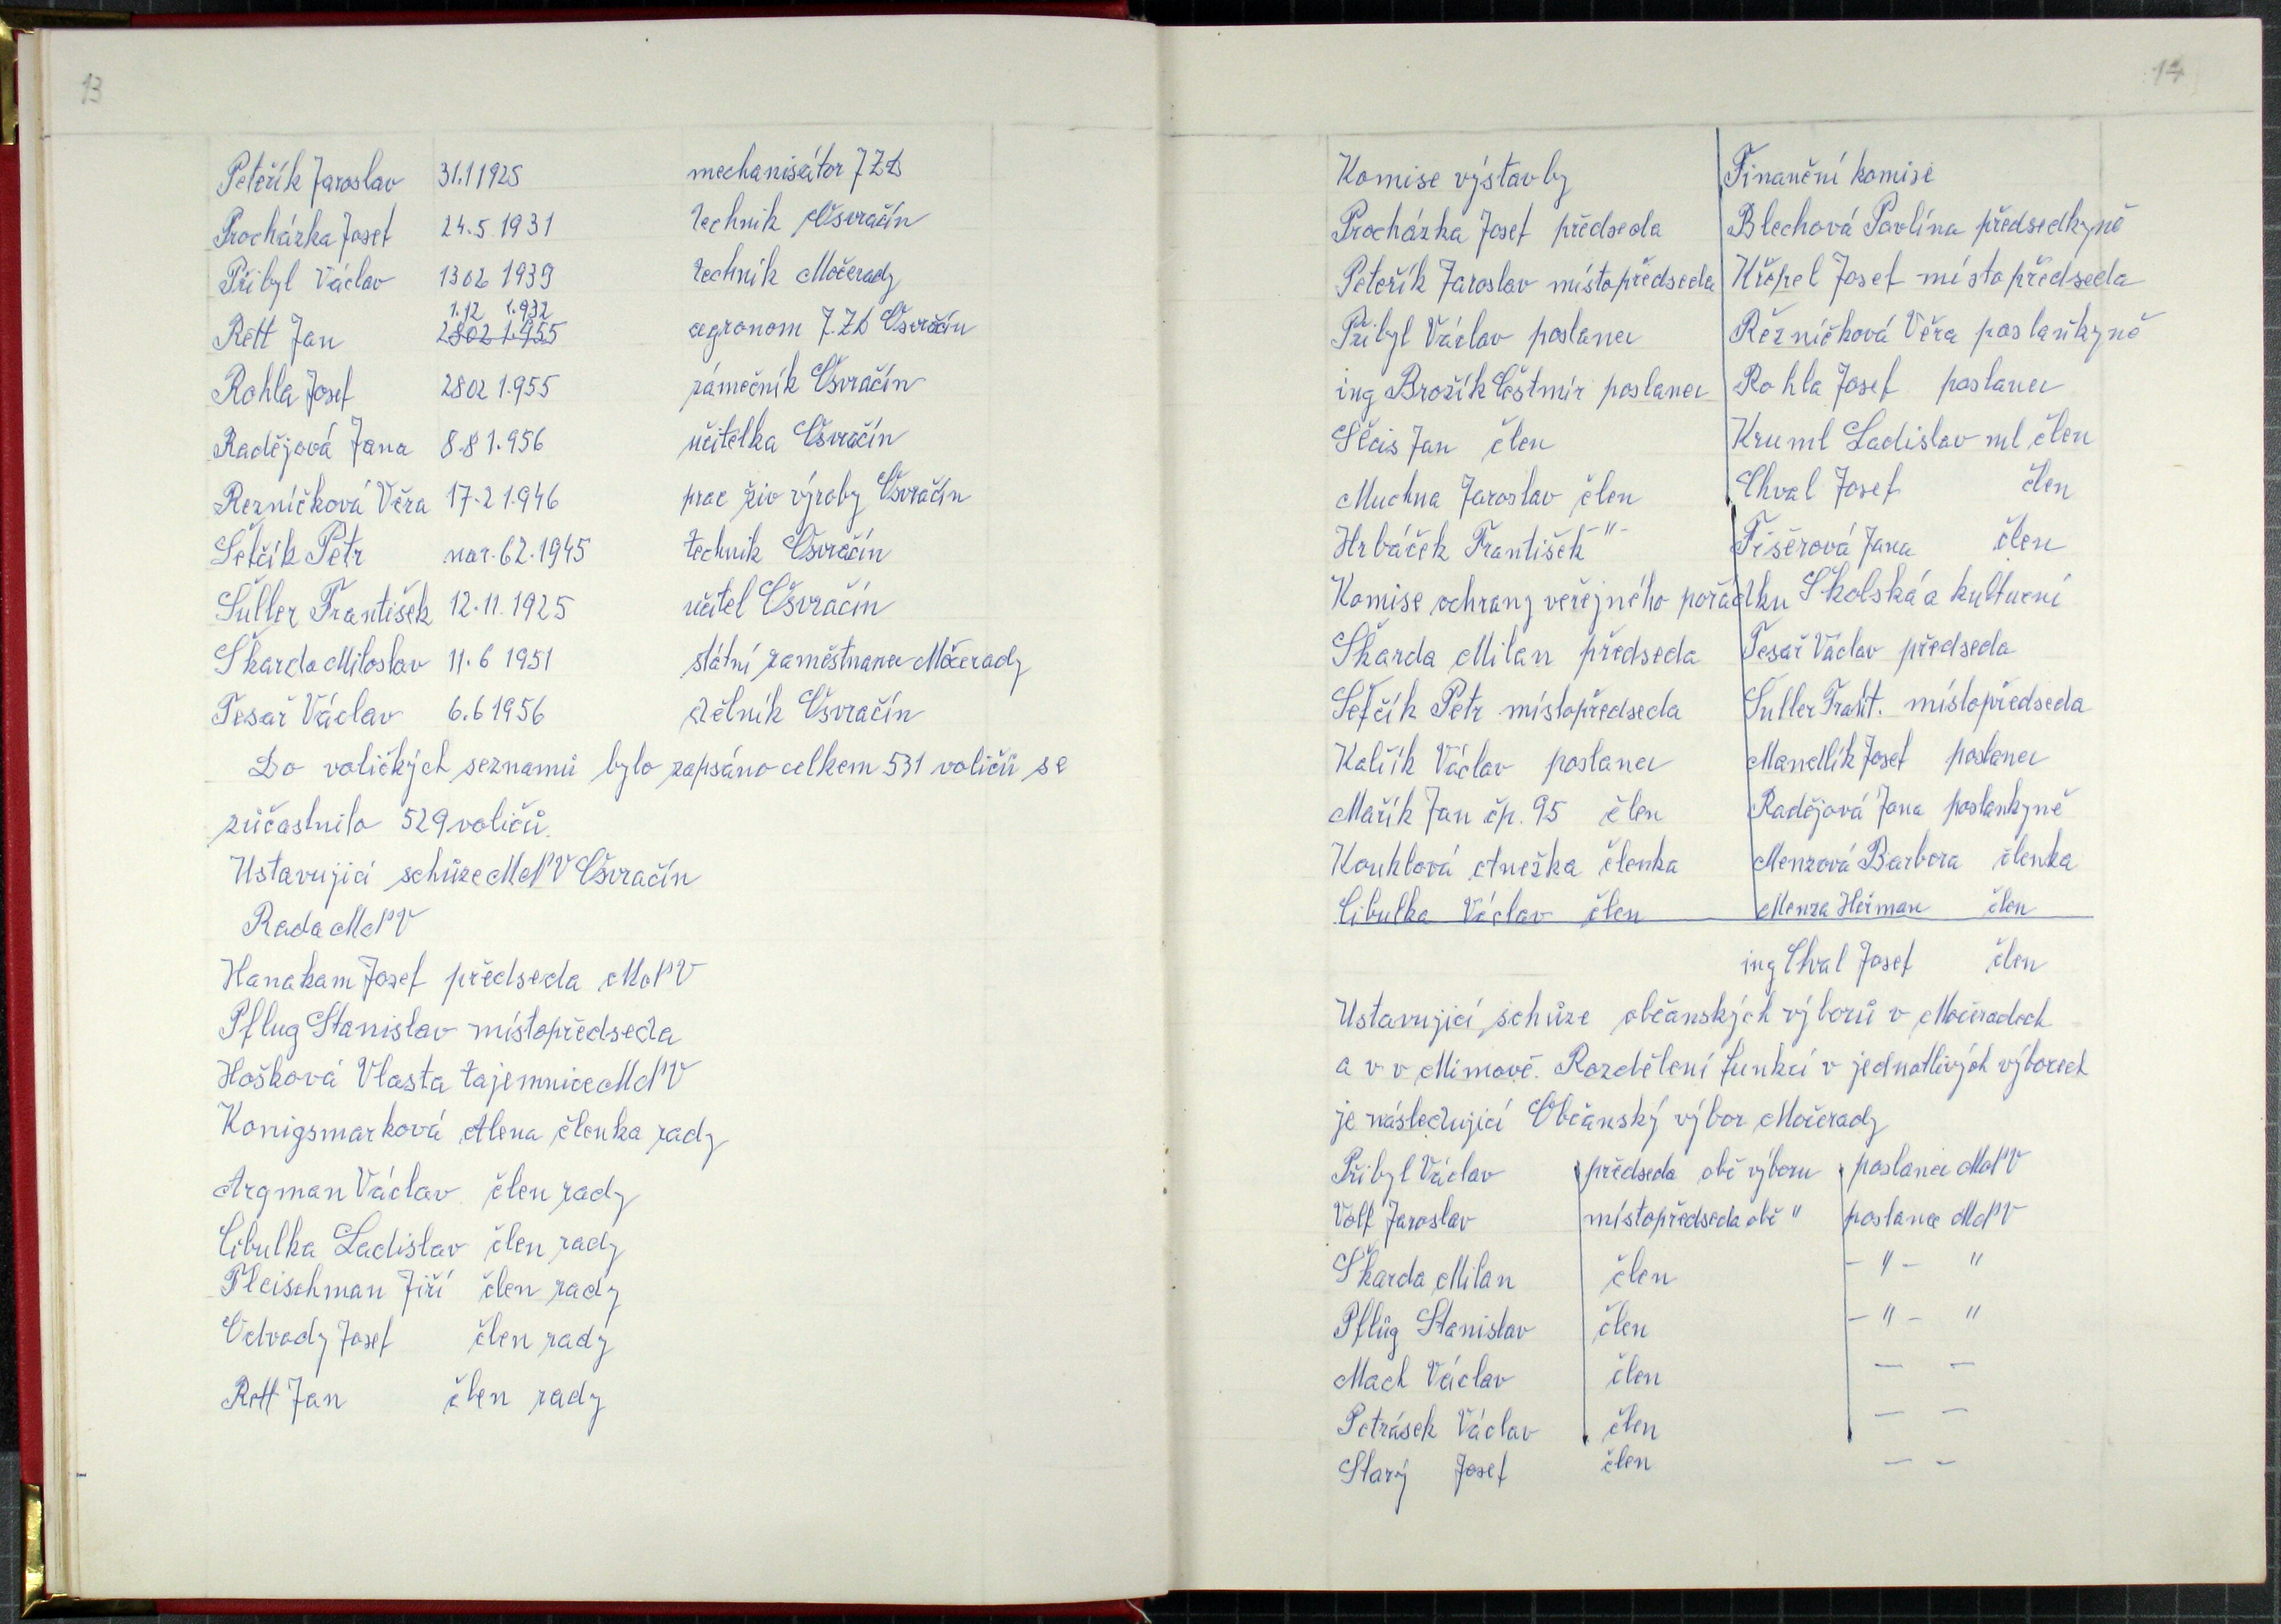 13
Peteřík Jaroslav 31.1 1925 mechanisátor JZD
Procházka Josef 24.5 1931 technik Osvračín
Přibyl Václav 1302 1939 technik Močerady
1.12 1.932
Rett Jan 2802 1.955 agronom J.ZD Osvračín
Rohla Josef 2802 1.955 zámečník Osvračín
Radějová Jana 8.8 1.956 učitelka Osvračín
Rezníčková Věra 17.2 1.946 prac živ výroby Osvračín
Šefčík Petr nar. 6 2. 1945 technik Osvračín
Šuller František 12.11. 1925 učitel Osvračín
Škarda Miloslav 11.6 1951 státní zaměstnanec Močerady
Tesař Václav 6.6 1956 dělník Osvračín
Do voličkých seznamů bylo zapsáno celkem 531 voličů se
zúčastnilo 529 voličů.
Ustavující schůze MNV Osvračín
Rada MNV
Hanakam Josef předseda MNV
Pflug Stanislav místopředseda
Hošková Vlasta tajemnice MNV
Konigsmarková Alena členka rady
Argman Václav člen rady
Cibulka Ladislav člen rady
Fleischman Jiří člen rady
Odvody Josef člen rady
Rett Jan člen rady
14
Komise výstavby Finanční komise
Procházka Josef předseda Blechová Pavlína předsedkyně
Peteřík Jaroslav místopředseda Křópel Josef místopředseda
Přibyl Václav poslanec Řězníčková Věra poslankyně
ing Brožík Čestmír poslanec Rohla Josef poslanec
Jan člen Kruml Ladislav ml člen
Muchna Jaroslav člen Chval Josef člen
Hrbáček František -"- Fišerová Jana člen
Komise ochrany veřejného pořádku Školská a kulturní
Škarda Milan předseda Tesař Václav předseda
Šefčík Petr místopředseda Šuller Frant. místopředseda
Kalčík Václav poslanec Mandlík Josef poslanec
Mařík Jan čp. 95 člen Radějová Jana poslankyně
Kouklová Anežka členka Menzová Barbora členka
Cibulka Václav člen Menza Heřman člen
ing Chval Josef člen
Ustavující schůze občanských výborů v Močeradech
a v v Mimově. Rozdělení funkcí v jednotlivých výborech
je následující Občanský výbor Močerady
Přibyl Václav předseda obč výboru poslanec MNV
Volf Jaroslav místopředseda obč " poslanec MNV
Škarda Milan člen - " - "
Pflüg Stanislav člen - " - "
Mach Václav člen — —
Petrásek Václav člen — —
Starý Josef člen — —